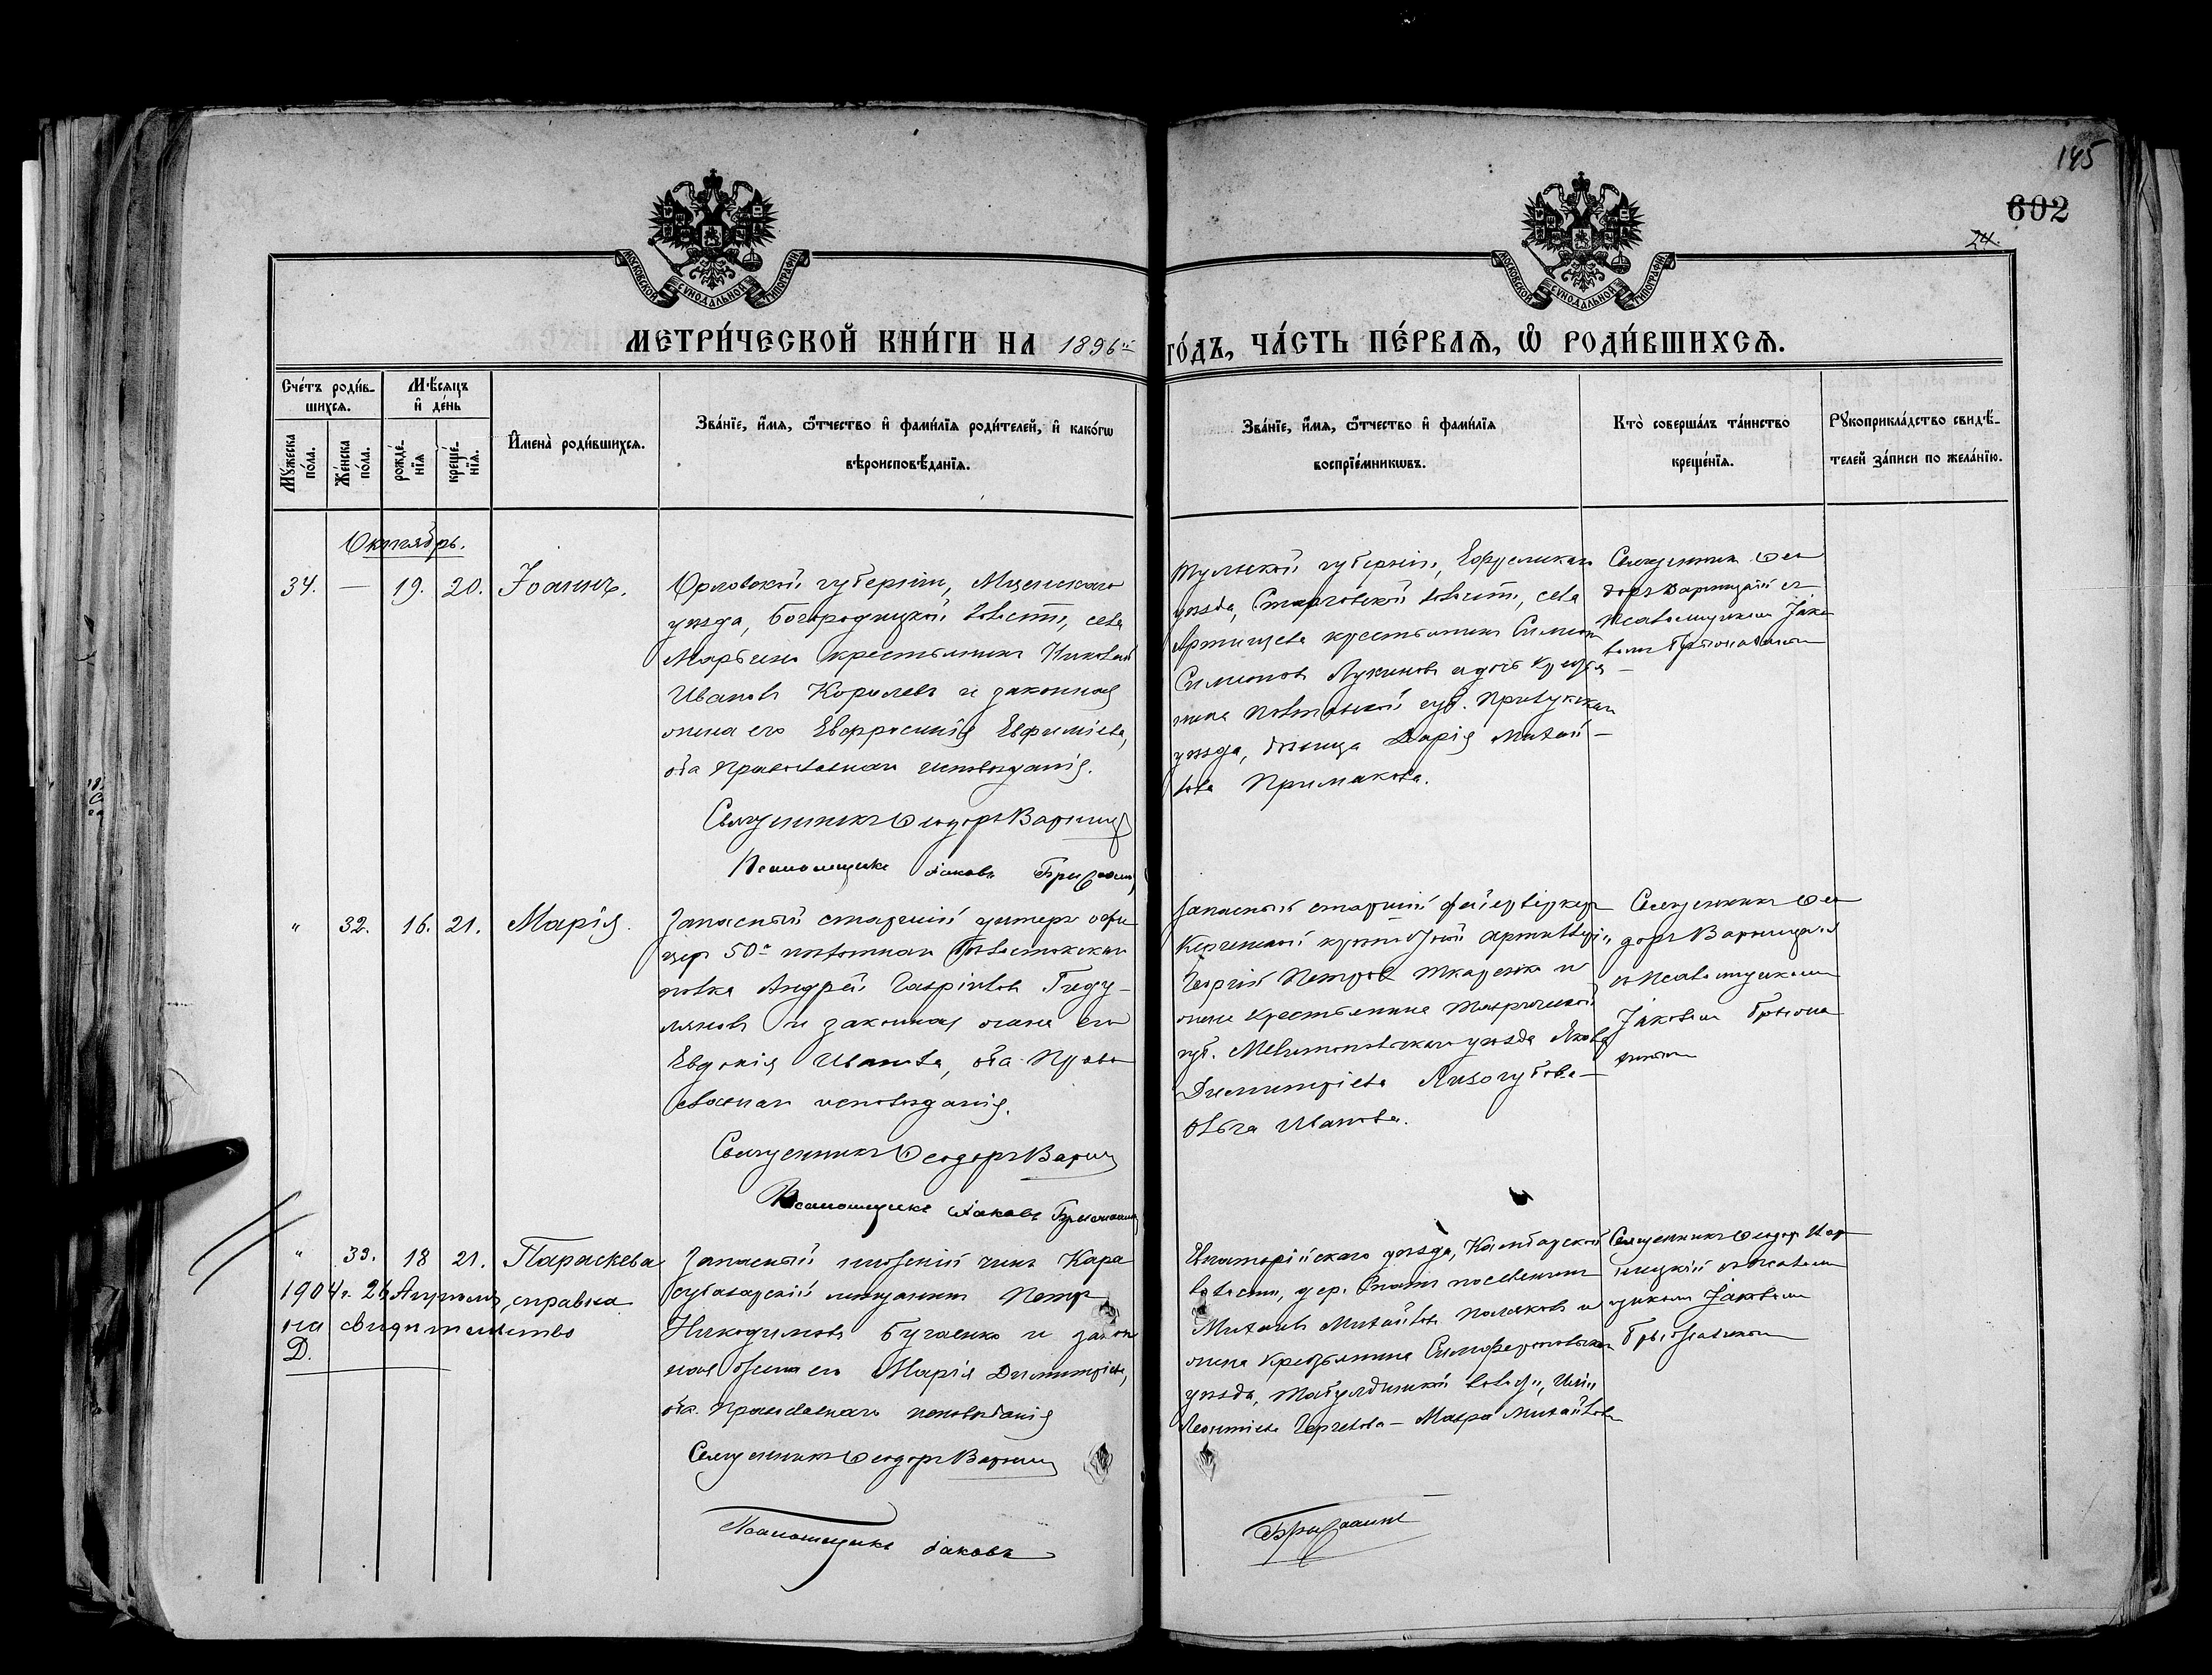 145
602
24.
МОСКОВСКОЙ СѴНОДАЛЬНОЙ ТИПОГРАФІИ
МОСКОВСКОЙ СѴНОДАЛЬНОЙ ТИПОГРАФІИ
МЕТРИ́ЧЕСКОЙ КНИ́ГИ НА 1896й ГО́ДЪ, ЧА́СТЬ ПЕ́РВАЯ, Ѡ РОДИ́ВШИХСЯ.
Сче́тъ роди́в-
шихся.
Мꙋ́жеска по́ла.
Же́нска по́ла.
Мѣ́сяцъ
и҆ де́нь
рожде́-
нїя
креще́-
нїя.
И҆мена̀ роди́вшихся.
Зва́нїе, и҆́мя, ѻ҆́тчество и҆ фами́лїя роди́телей, и҆ како́гѡ
вѣроисповѣ́данїя.
Зва́нїе, и҆́мя, ѻ҆́тчество и҆ фами́лїя
воспрїе́мникѡвъ.
Кто̀ соверша́лъ та́инство
креще́нїя.
Рꙋкоприкла́дство свидѣ́-
телей за́писи по жела́нїю.
Октябрь.
34. — 19. 20. Іоаннъ.
Орловской губерніи, Мценскаго
уѣзда, Богородицкой волости, села
Марьина крестьянинъ Николай
Ивановъ Королевъ и законная
жена его Евфросинія Евфиміева,
оба православнаго исповѣданія.
Священникъ Ѳеодоръ Варниц
Псаломщикъ Іаковъ
Тульской губерніи,
уѣзда, волости, села
крестьянинъ Симеонъ
Симеоновъ Лукиновъ и дочь
Полтавской губ. Прилукскаго
уѣзда, дѣвица Дарія Михай-
лова Примакова.
Священникъ Ѳео
доръ Варницкій съ
псаломщикомъ Іако
вомъ
" 32. 16. 21. Марія.
Запасный старшій унтеръ офи
церъ 50го пѣхотнаго Бѣлостокскаго
полка Андрей Гавріиловъ
и законная жена его
Евдокія Иванова, оба право
славнаго исповѣданія.
Священникъ Ѳеодоръ Варниц
Псаломщикъ Іаковъ
Запасный старшій фейерверкеръ
Керченской крѣпостной артиллеріи
Георгій Петровъ Ткаренко и
жена крестьянина Таврической
губ. Мелитопольскаго уѣзда Якова
Димитріева Лизогубова —
Ольга Иванова.
Священникъ Ѳео
доръ Варницкій
съ псаломщикомъ
Іаковомъ
" 33. 18 21. Параскева
1904 г. 26 Апрѣля, справка
на свидѣтельство
Д.
Запасный нижній чинъ Кара
субазарскій мѣщанинъ Петръ
Никодимовъ Бугаенко и закон
ная жена его Марія Димитріева,
оба православнаго исповѣданія
Священникъ Ѳеодоръ Варниц
Псаломщикъ Іаковъ
Евпаторійскаго уѣзда,
волости, дер. поселянинъ
Михаилъ Михайловъ Поляковъ и
жена крестьянина Симферопольскаго
уѣзда, Табулдинской волости,
Леонтіева — Мавра Михайлова
Священникъ Ѳеодоръ Вар
ницкій съ псалом
щикомъ Іаковомъ